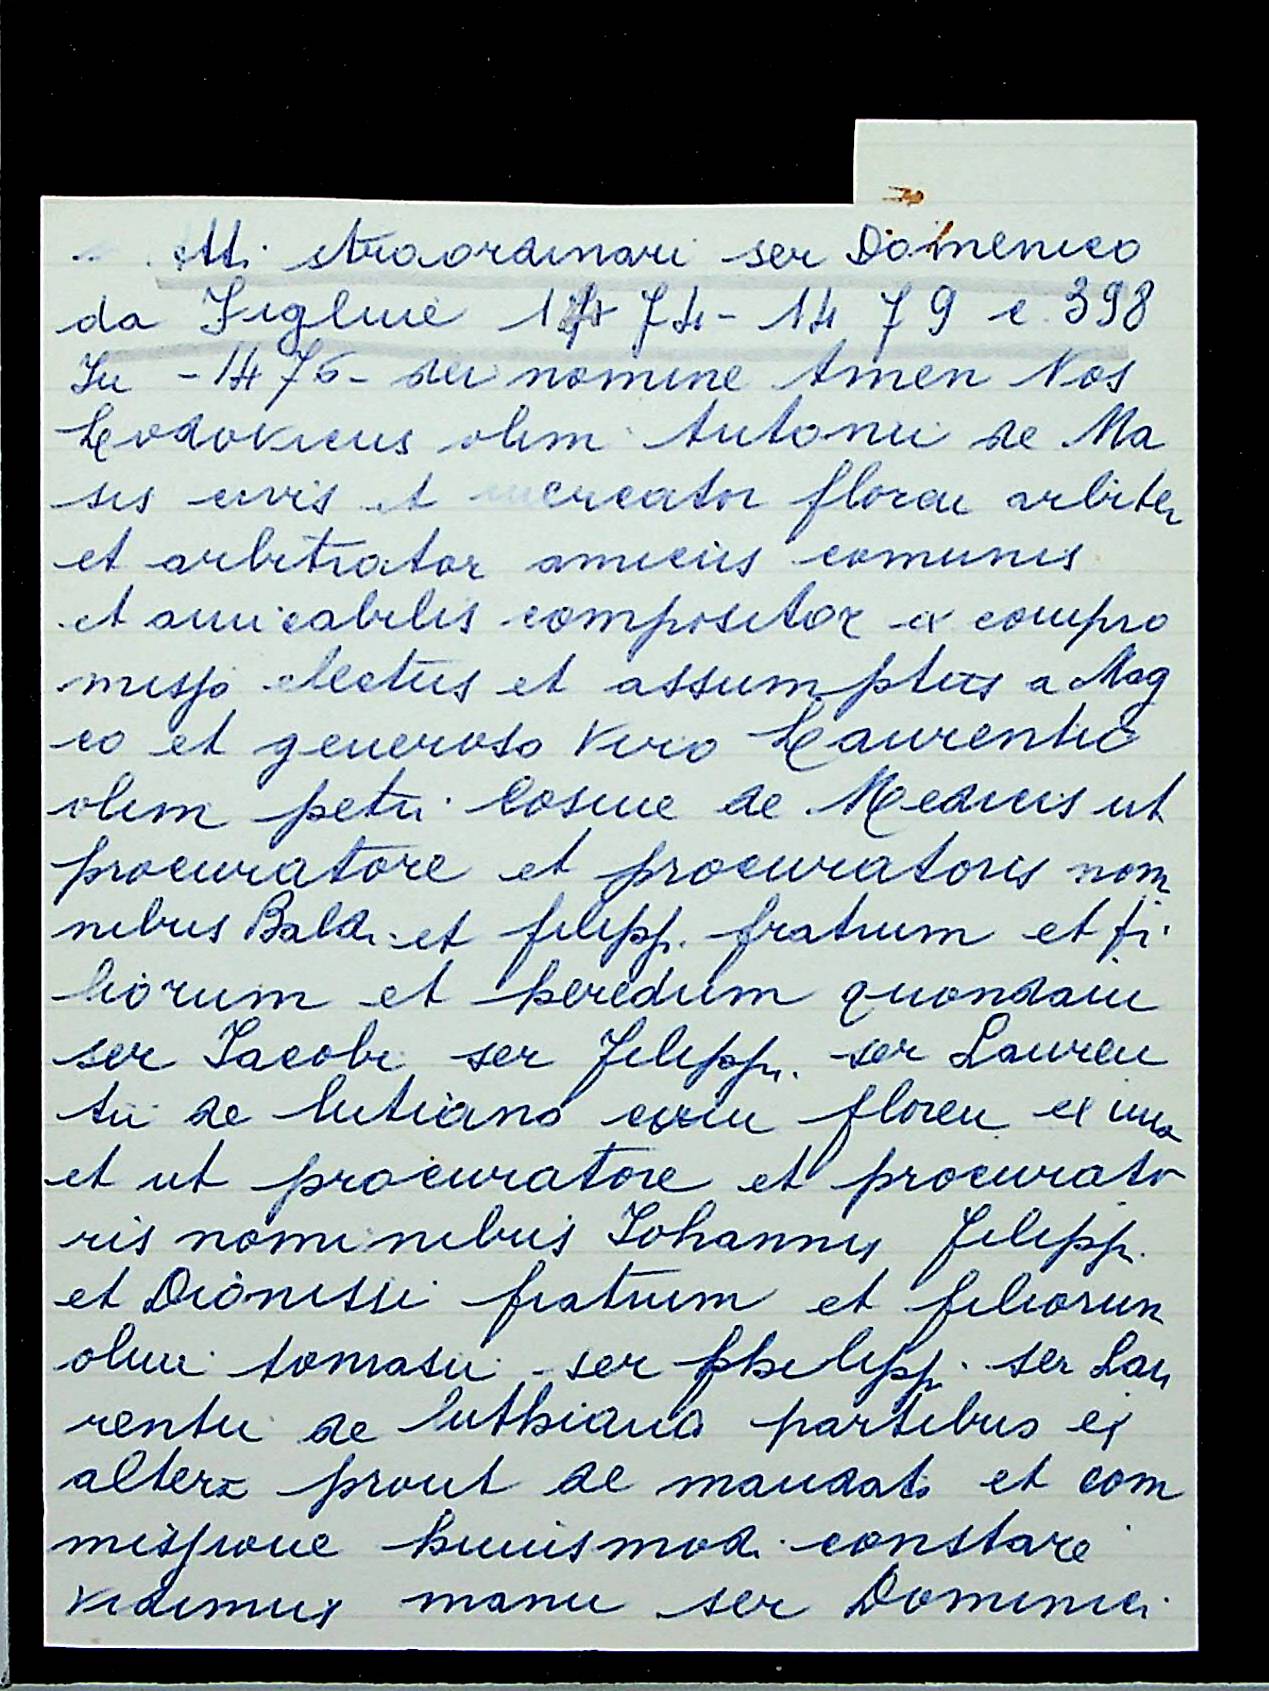 Atti straordinari ser Domenico
da Figline 1474-1479 c. 398
In -1476- dei nomine Amen Nos
Lodovicus olim Antonii de Ma
sis civis et mercator floren arbiter
et arbitrator amicus comunis
et amicabilis compositor ex compro
misso electus et assumptus a Mag
co et generoso viro Laurentio
olim petri Cosme de Medicis ut
procuratore et procuratoris nom
nibus Bald. et filipp. fratrum et fi
liorum et heredum quondam
ser Iacobi ser Filipp. ser Lauren
tii de lutiano civiu floren ex una
et ut procuratore et procurato
ris nominibus Iohannis Filipp.
et Dionissi fratrum et filiorum
olim tomasii ser philipp. ser Lau
rentii de luthiano partibus ex
altera prout de mandato et com
missione huiusmodi constare
vidimus manu ser Dominici